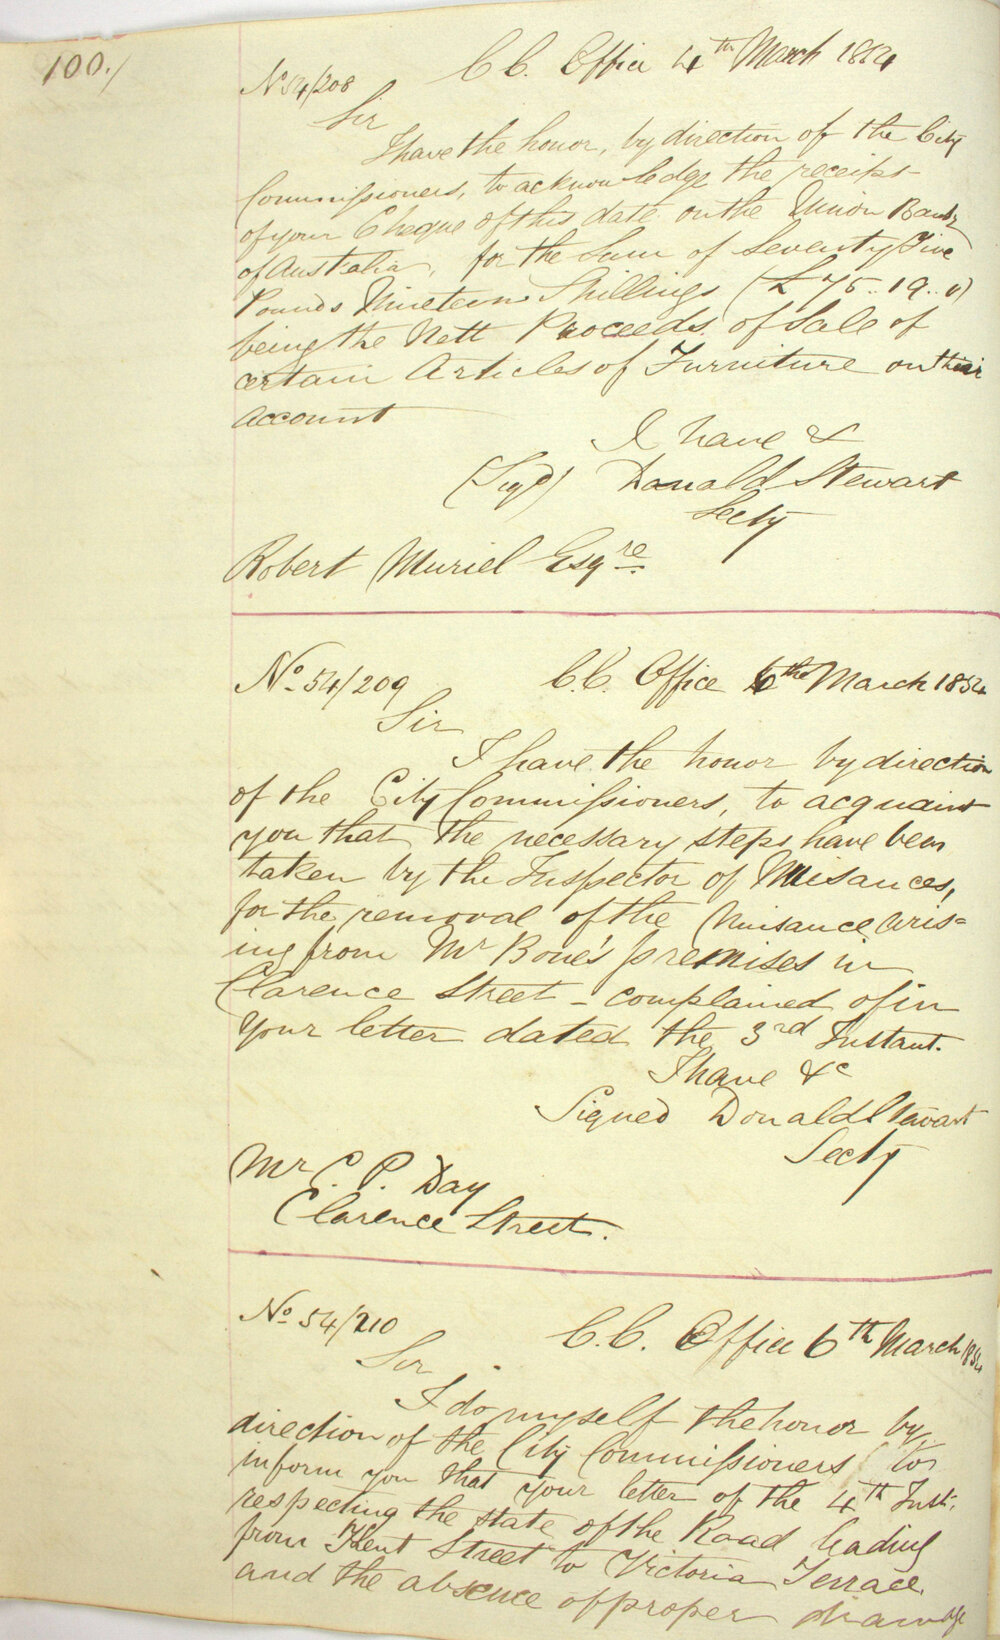 100./
No 54/208 C.C. Office 4th March 1854
Sir
I have the honor, by direction of the City
Commissioners, to acknowledge the receipt
of your Cheque of this date on the Union Bank
of Australia, for the Sum of Seventy Five
Pounds Nineteen Shillings (£75..19..0)
being the Nett Proceeds of Sale of
certain Articles of Furniture on their
account
I have &
(Sigd) Donald Stewart
Secty
Robert Muriel Esqre
No. 54/209 C.C. Office 6th March 1854
Sir
I have the honor by direction
of the City Commissioners, to acquaint
you that the necessary steps have been
taken by the Inspector of Nuisances,
for the removal of the Nuisance aris=
ing from Mr Bone's premises in
Clarence Street - complained of in
your letter dated the 3rd Instant.
I have &c
Signed Donald Stewart
Secty
Mr C. P. Day
Clarence Street.
No. 54/210 C.C. Office 6th March 1854
Sir
I do myself the honor by
direction of the City Commissioners to
inform you that your letter of the 4th Inst.
respecting the state of the Road leading
from Kent Street to Victoria Terrace,
and the absence of proper drainage